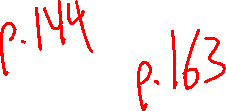 p.144
p.163